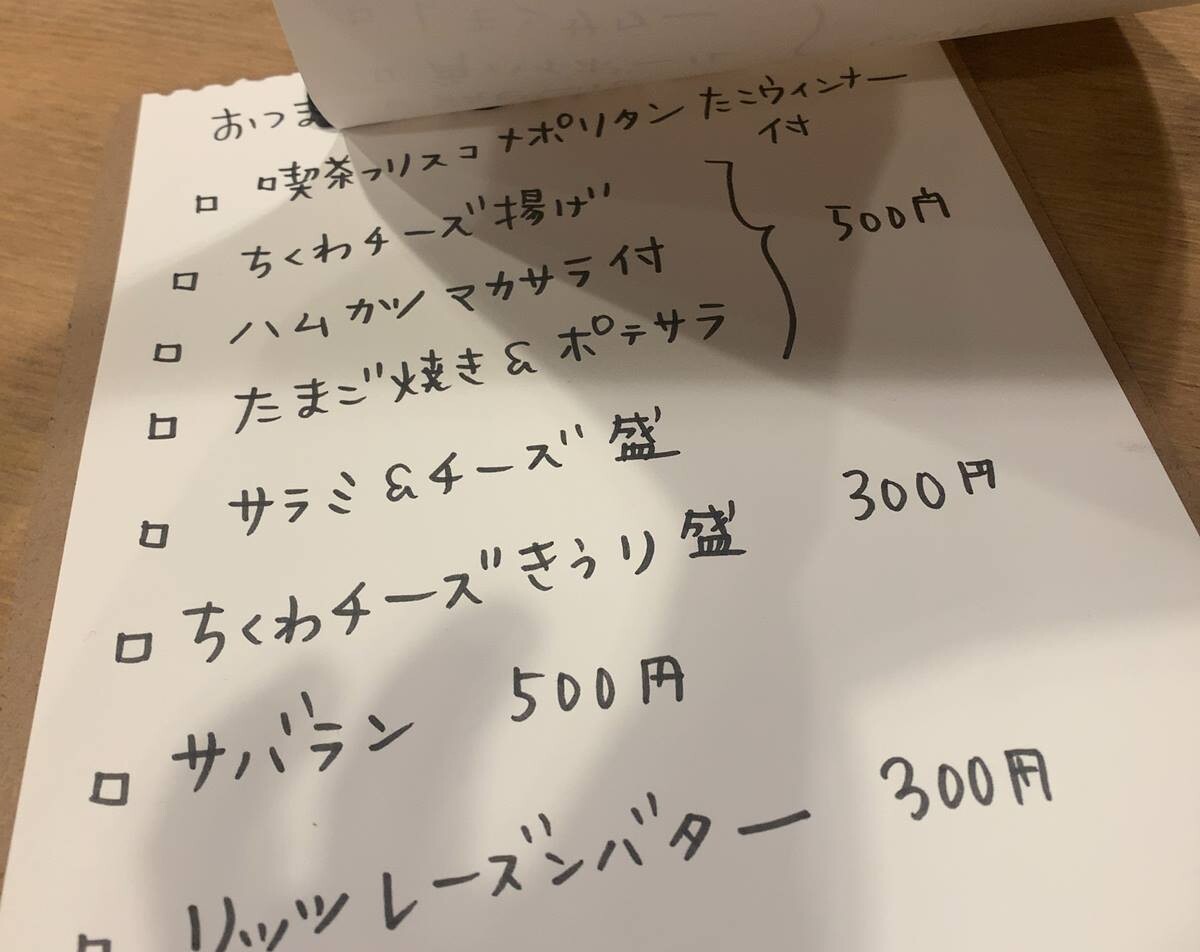 おつま
□ 喫茶フリスコ ナポリタン たこウィンナー付
□ ちくわチーズ揚げ
□ ハムカツ マカサラ付
□ たまご焼き&ポテサラ
500円
□ サラミ&チーズ盛
□ ちくわチーズきうり盛 300円
□ サバラン 500円
□ リッツレーズンバター 300円